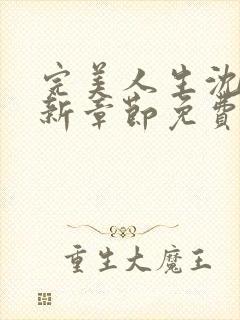 完美人生沈
新章節免費
重生大魔王